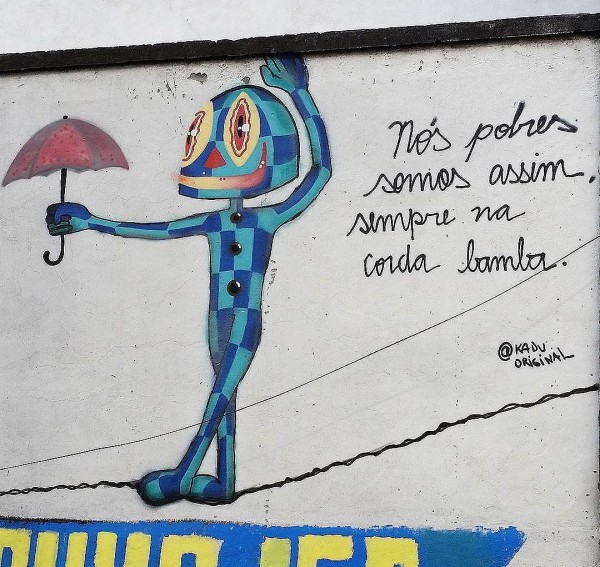 Nós pobres
somos assim,
sempre na
corda bamba.
@KADU
ORIGINAL